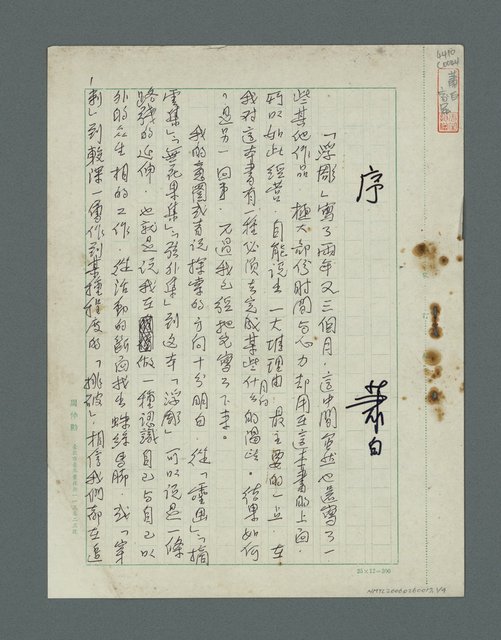 序
蕭白
「浮彫」寫了兩年又三個月，這中間當然也還寫了一
些其他作品，極大部份時間與心力却用在這本書的上面，
所以如此經營，自能說出一大堆理由，最主要的一点，在
我對這本書有一種必須去完成某些什么的
。結果如何
，是另一回事，不過我已經把它寫了下來。
我的意圖或者說探索的方向十分明白，從「靈畫」「摘
雲集」「無花果集」「弦外集」到這本「浮彫」可以說是一條
路線的延伸，也就是說我在做一種認識自己與自己以
外的眾生相的工作，從活動的斷面找出蛛絲馬跡，或「穿
刺」到較深一層作到某種程度的「挑破」，相信我們都在追
25×12=300